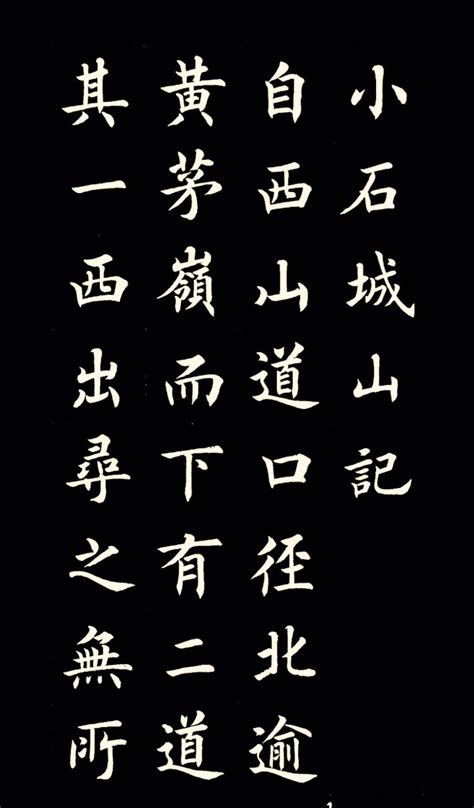 小石城山記
自西山道口徑北逾
黃茅嶺而下有二道
其一西出尋之無所